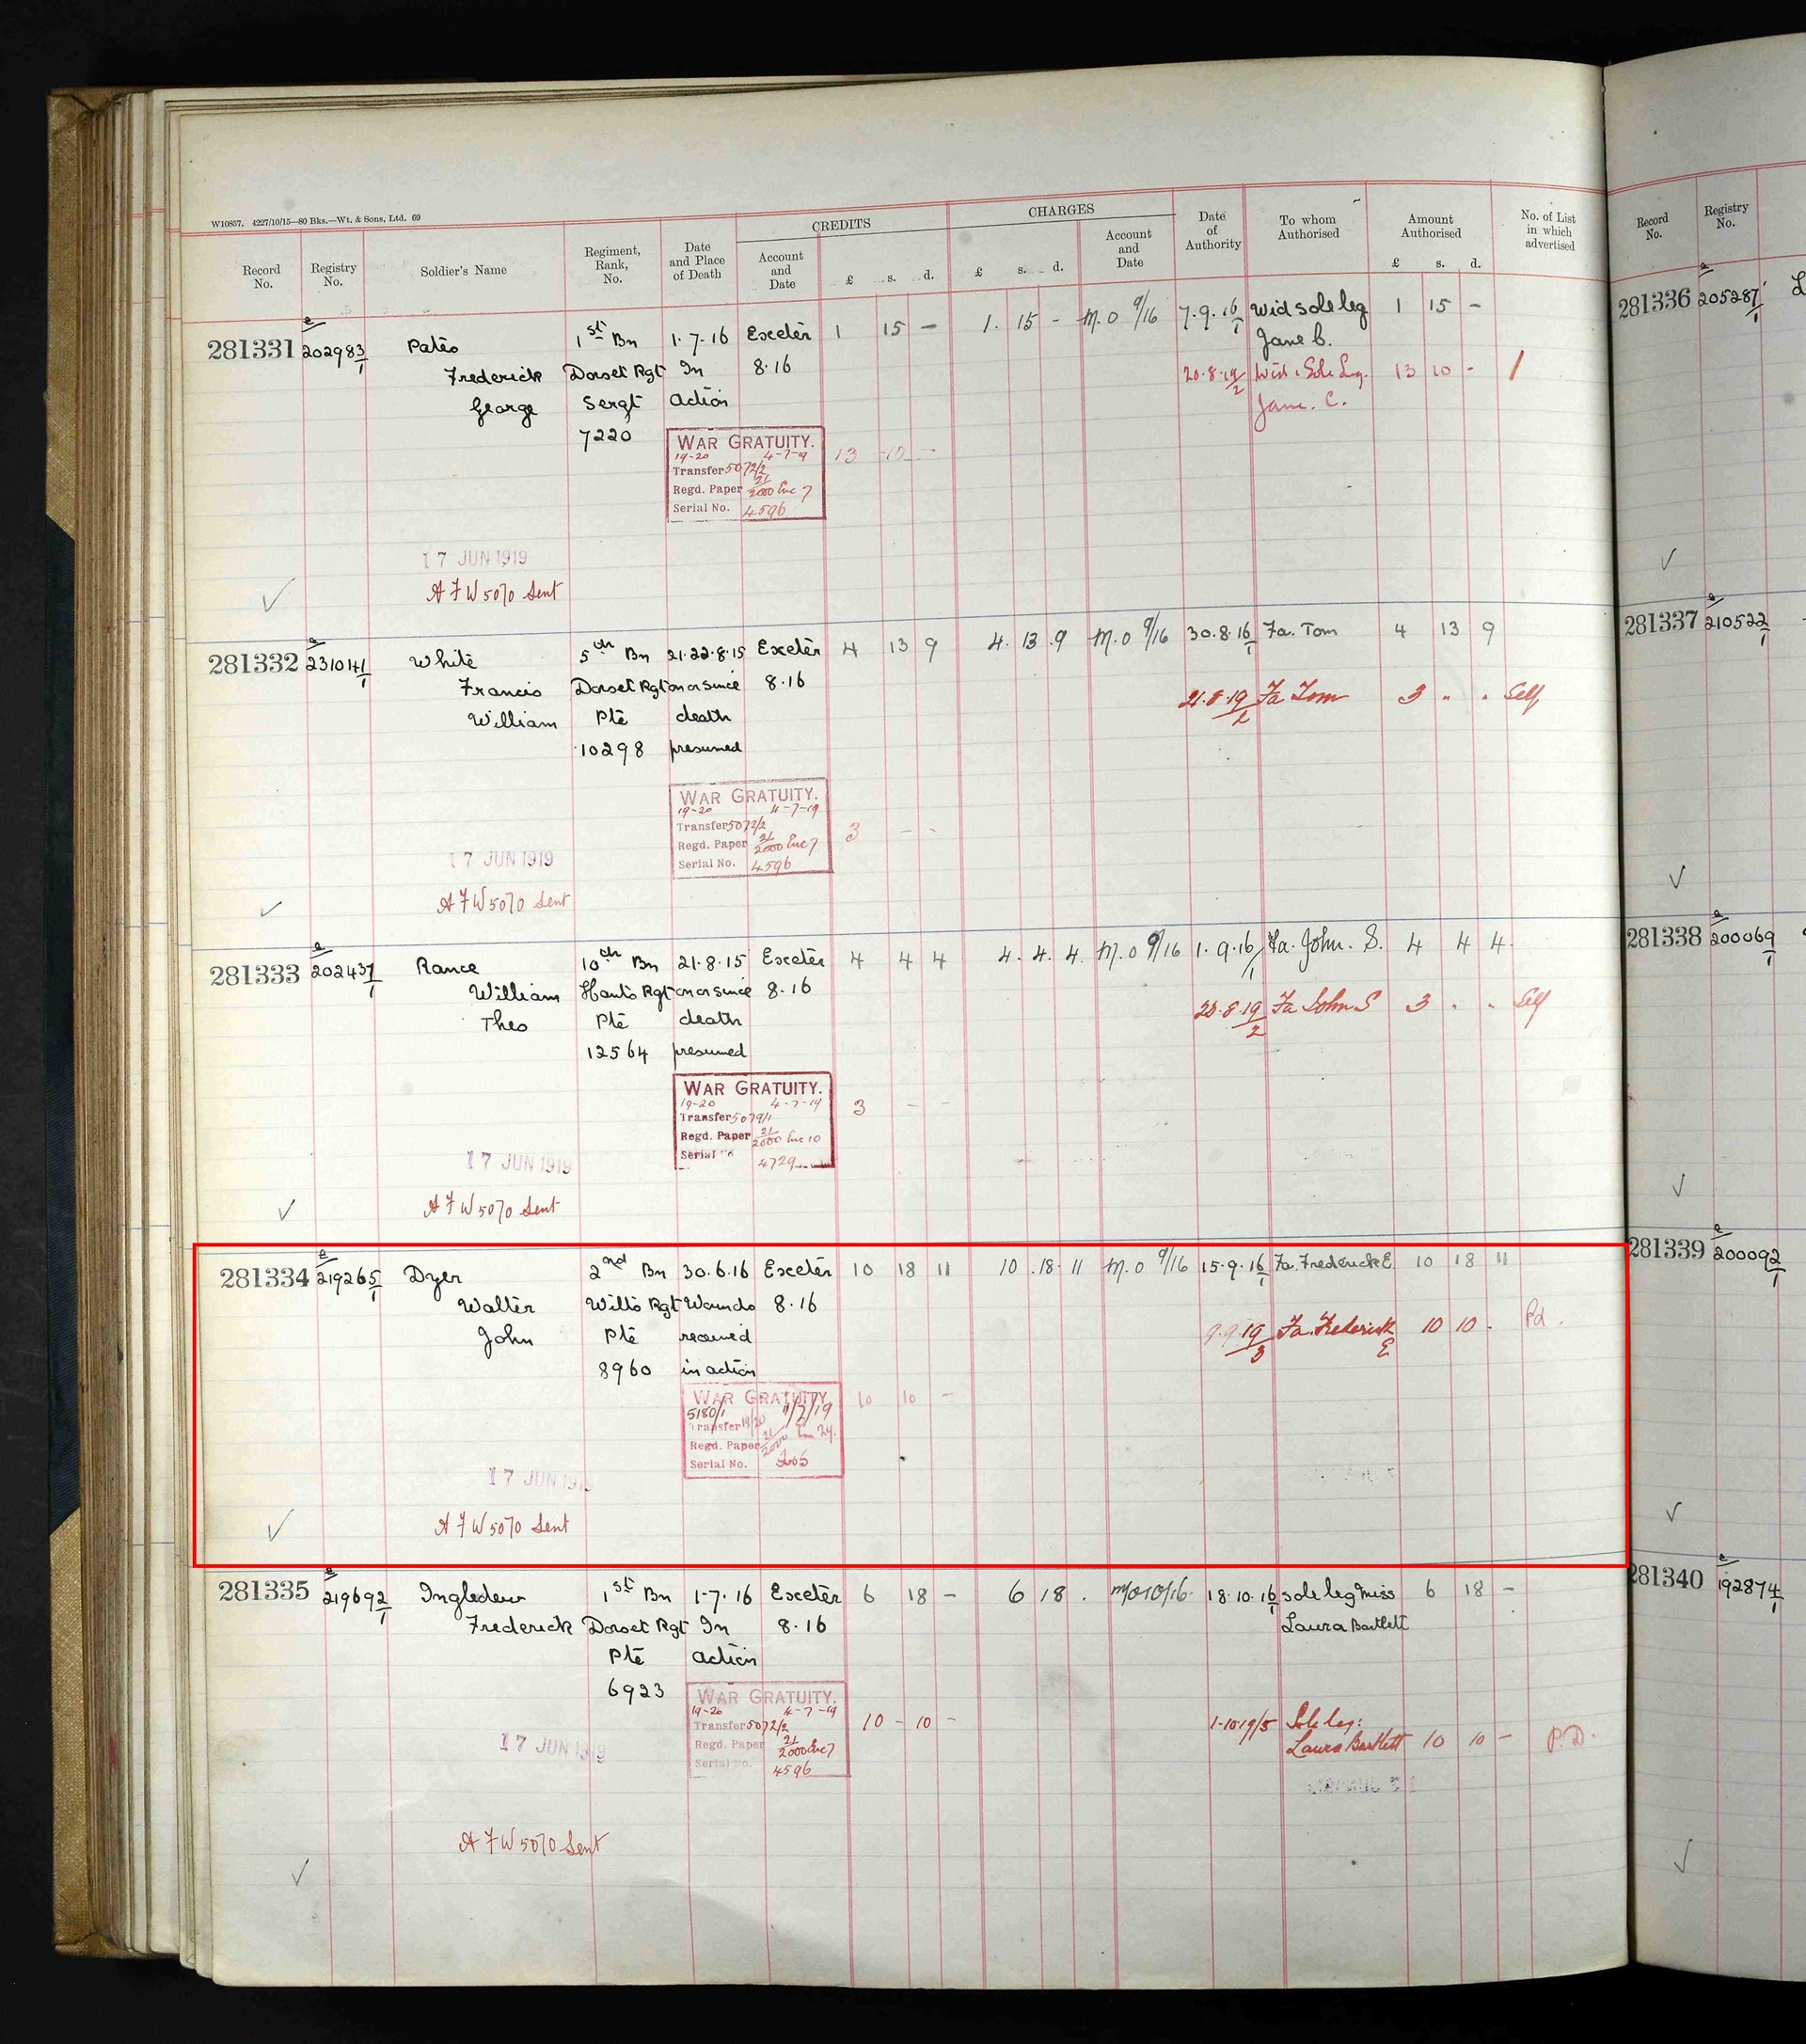 W10857. 4227/10/15—80 Bks.—Wt. & Sons, Ltd. 69
CREDITS
CHARGES
Record No.
Registry No.
Soldier's Name
Regiment, Rank, No.
Date and Place of Death
Account and Date
£ s. d.
£ s. d.
Account and Date
Date of Authority
To whom Authorised
Amount Authorised
£ s. d.
No. of List in which advertised
Record No.
Registry No.
281331 202983/1 Pates 1st Bn 1.7.16 Exeter 1 15 – 1. 15 – M.O 9/16 7.9.16/1 Wid sole leg 1 15 –
Jane C.
Frederick Dorset Rgt In 8.16 20.8.19/2 Wid. Sole Leg. 13 10 -
George Sergt action Jane. C.
7220
WAR GRATUITY.
19-20 4-7-19
Transfer 5072/2
Regd. Paper 21/2000 Enc 7
Serial No. 4596
13 10 –
17 JUN 1919
A F W 5070 Sent
281332 231041/1 White 5th Bn 21.22.8.15 Exeter 4 13 9 4. 13. 9 M.O 9/16 30.8.16/1 Fa. Tom 4 13 9
Francis Dorset Rgt on or since 8.16 21.8.19/2 Fa Tom 3 " " Self
William Pte death
10298 presumed
WAR GRATUITY.
19-20 4-7-19
Transfer 5072/2
Regd. Paper 21/2000 Enc 7
Serial No. 4596
3 - -
17 JUN 1919
A F W 5070 Sent
281333 202437/1 Rance 10th Bn 21.8.15 Exeter 4 4 4 4. 4. 4. M.O 9/16 1.9.16/1 Fa. John. S. 4 4 4.
William Hants Rgt on or since 8.16 Fa John S 3 . . Self
Theo Pte death
12564 presumed
WAR GRATUITY.
19-20 4-7-19
Transfer 5079/1
Regd. Paper 21/2000 Enc 10
Serial 4729
3 - -
17 JUN 1919
A F W 5070 Sent
281334 219265/1 Dyer 2nd Bn 30.6.16 Exeter 10 18 11 10. 18. 11 M.O 9/16 15.9.16/1 Fa. Frederick E 10 18 11
Walter Wilts Rgt Wounds 8.16
John Pte received 9.9.19/3 Fa. Frederick E 10 10 . Pd.
8960 in action
WAR GRATUITY.
5180/1 11/7/19
Transfer 19/20
Regd. Paper 21/2000
Serial No.
10 10 –
17 JUN 19
A F W 5070 Sent
281335 219692/1 Ingledew 1st Bn 1.7.16 Exeter 6 18 – 6 18 . M.O 10/16. 18.10.16/1 sole leg Miss 6 18 –
Frederick Dorset Rgt In 8.16 Laura Bartlett
Pte action
6923
WAR GRATUITY.
19-20 4-7-19
Transfer 5072/2
Regd. Paper 21/2000 Enc 7
Serial No. 4596
10 - 10 -
1-10-19/5 Sole leg:
Laura Bartlett 10 10 – P.D.
17 JUN 1919
A F W 5070 Sent
281336 205287/1
281337 210522/1
281338 200069/1
281339 200092/1
281340 192874/1